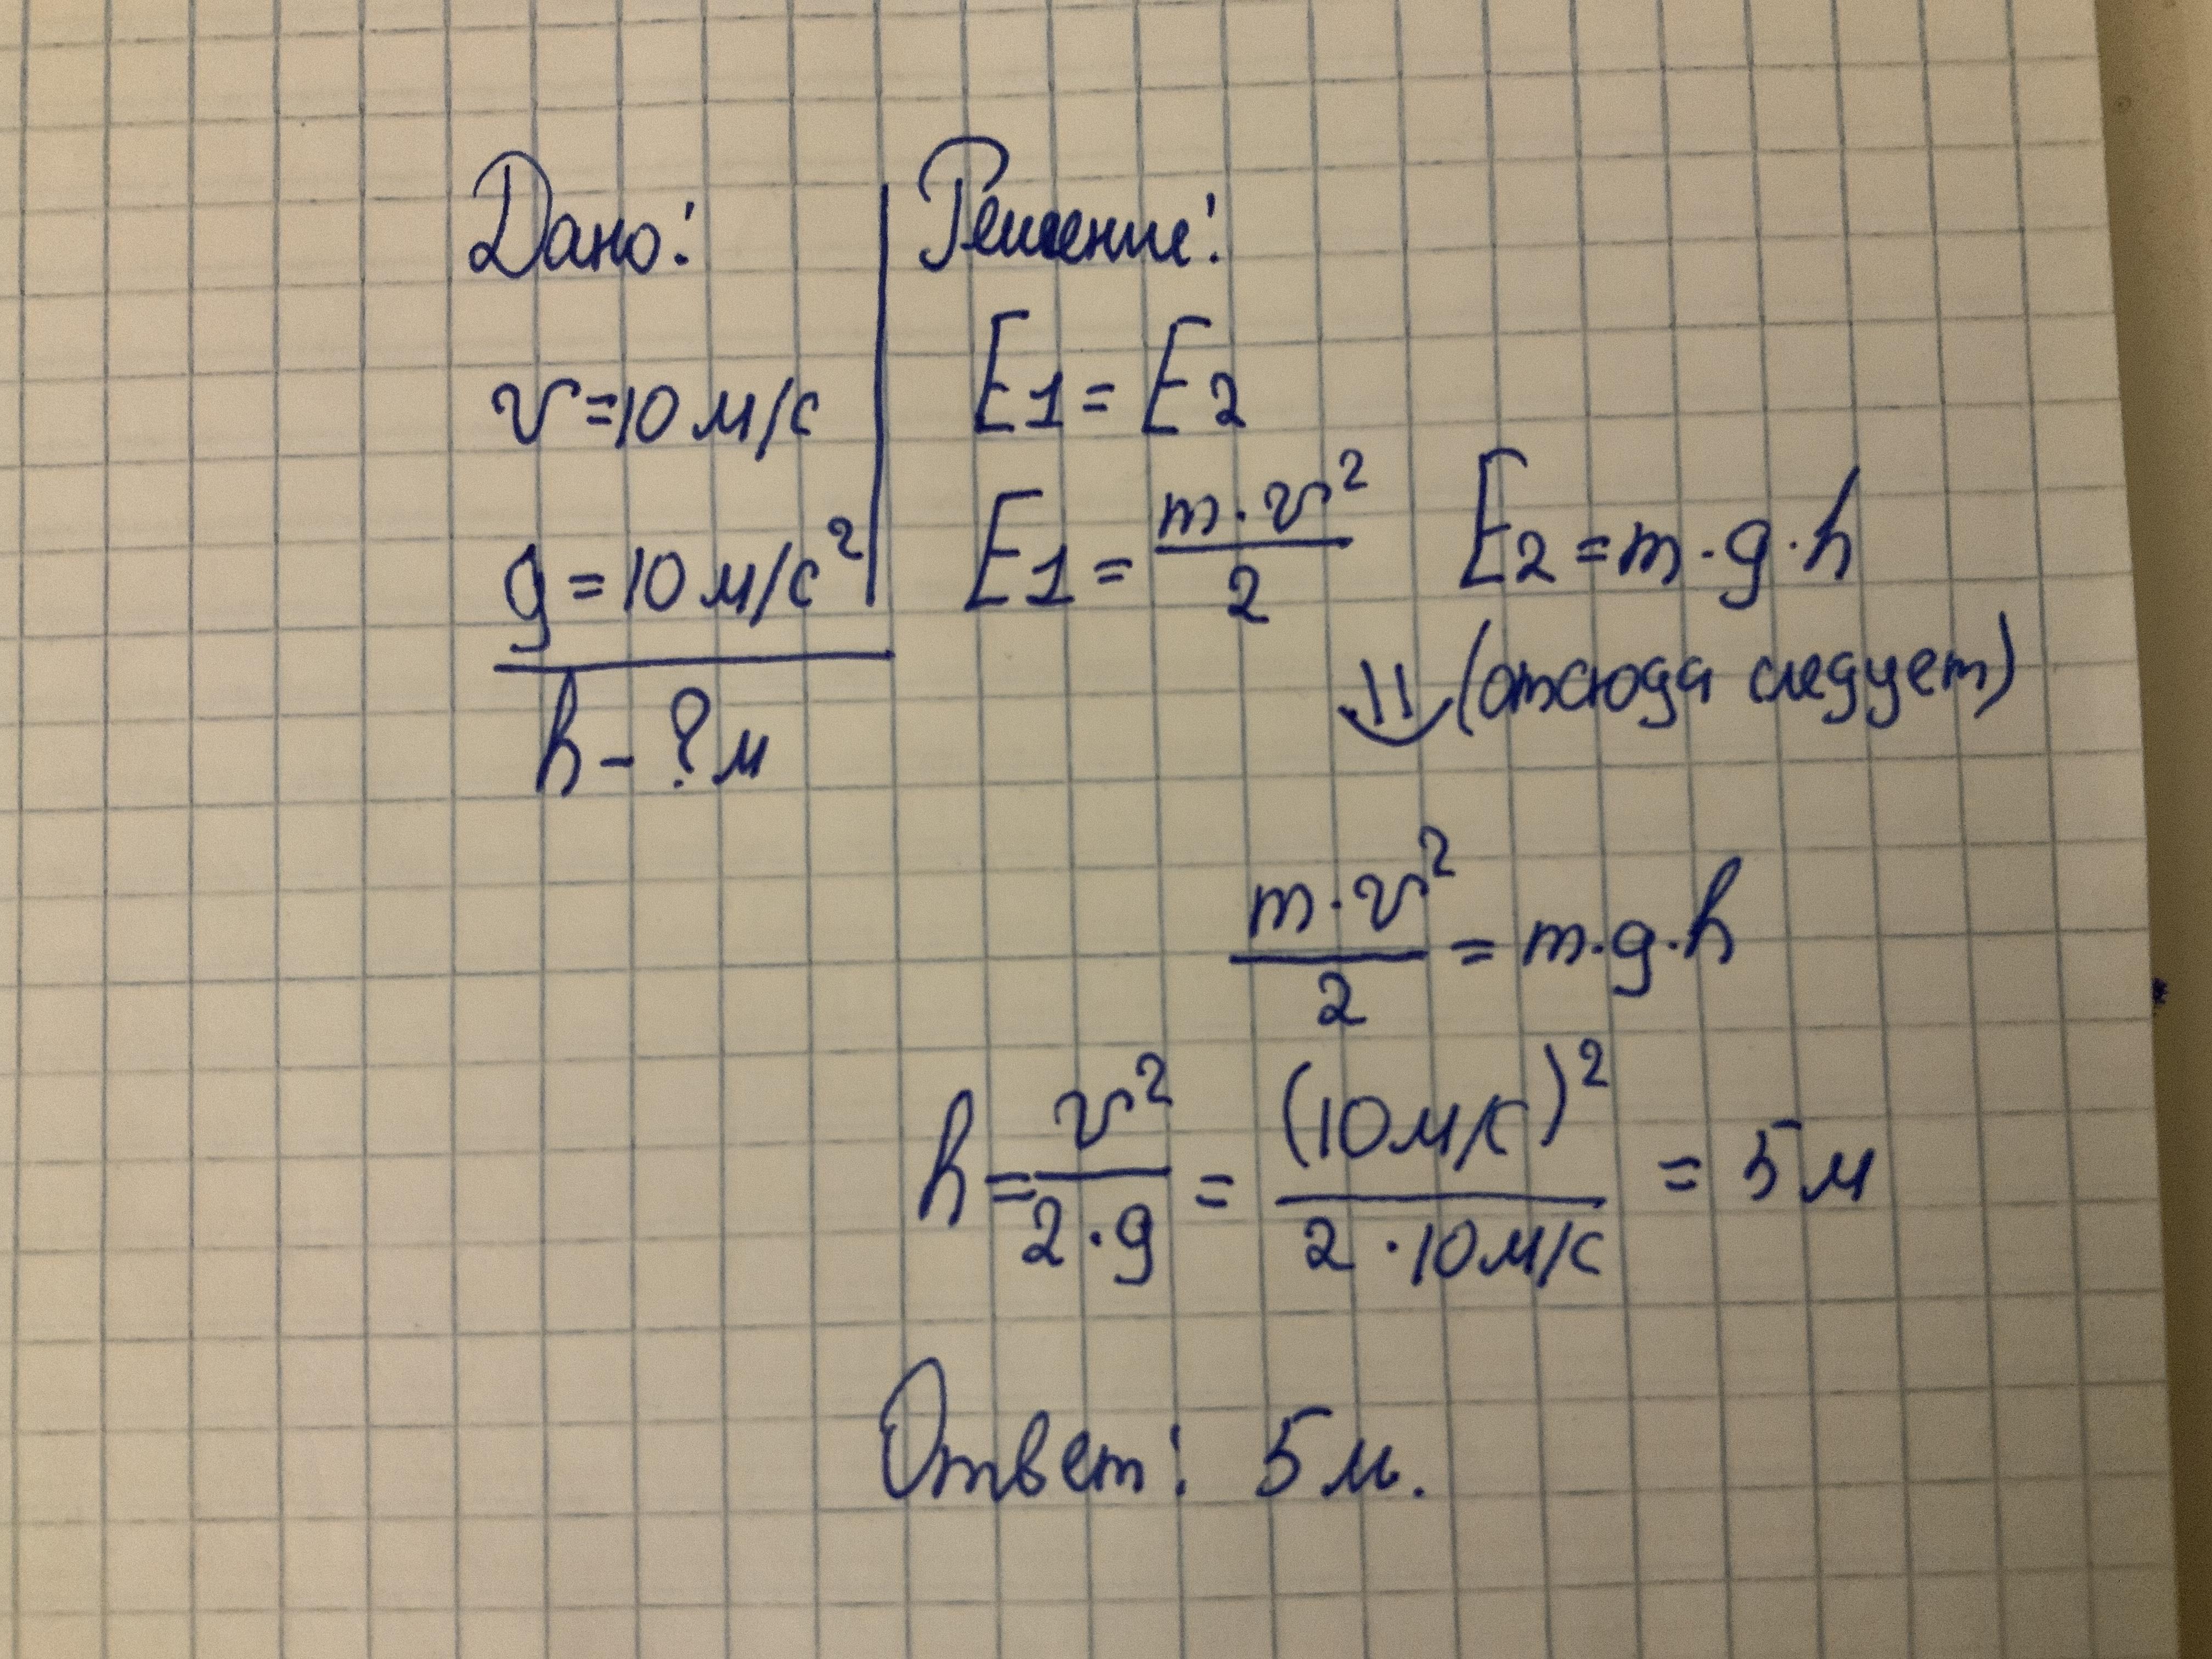 Дано:
v=10 м/с
g=10 м/с²
h-?м
Решение:
E1=E2
E1= m·v²/2 E2=m·g·h
⇓ (отсюда следует)
m·v²/2 = m·g·h
h= v²/2·g = (10м/с)²/2·10м/с = 5м
Ответ: 5м.